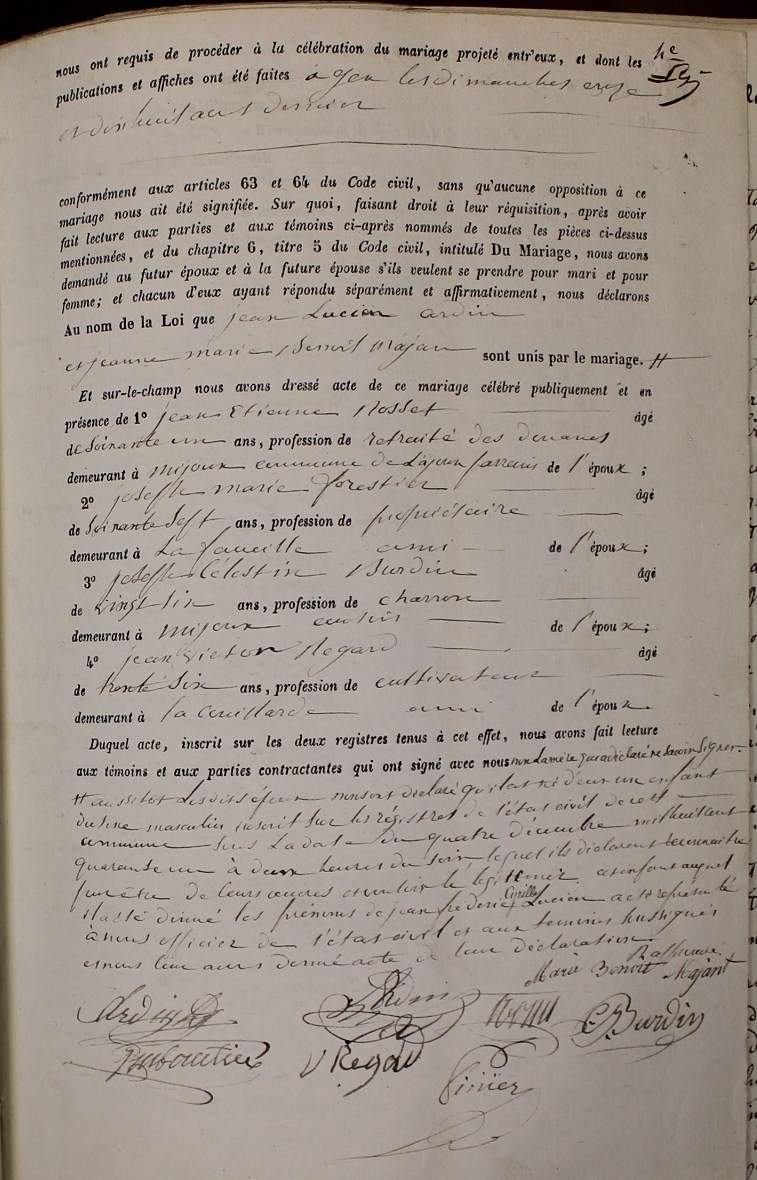 nous ont requis de procéder à la célébration du mariage projeté entr'eux, et dont les
publications et affiches ont été faites à Gex les Dimanches onze
et dix huit aout dernier
conformément aux articles 63 et 64 du Code civil, sans qu'aucune opposition à ce
mariage nous ait été signifiée. Sur quoi, faisant droit à leur réquisition, après avoir
fait lecture aux parties et aux témoins ci-après nommés de toutes les pièces ci-dessus
mentionnées, et du chapitre 6, titre 5 du Code civil, intitulé Du Mariage, nous avons
demandé au futur époux et à la future épouse s'ils veulent se prendre pour mari et pour
femme; et chacun d'eux ayant répondu séparément et affirmativement, nous déclarons
Au nom de la Loi que jean Lucien ardin
et jeanne marie Benoit Majan sont unis par le mariage. #
Et sur-le-champ nous avons dressé acte de ce mariage célébré publiquement et en
présence de 1º jean Etienne Rosset âgé
de Soixante un ans, profession de retraité des douanes
demeurant à mijoux commune de de l'époux;
2º joseph marie forestier âgé
de Soixante Sept ans, profession de propriétaire
demeurant à La faucille ami de l'époux;
3º joseph Célestin Burdin âgé
de vingt six ans, profession de charron
demeurant à mijoux cousin de l'époux;
4º jean victor Regard âgé
de trente Six ans, profession de cultivateur
demeurant à la ami de l'époux.
Duquel acte, inscrit sur les deux registres tenus à cet effet, nous avons fait lecture
aux témoins et aux parties contractantes qui ont signé avec nous non La mère qui a déclaré ne Savoir Signer.
# aussitot Lesdits époux nous ont déclaré qu'il est né d'eux un enfant
du sexe masculin inscrit Sur les régistres de l'état civil de cette
commune Sous La date du quatre décembre mil huit cent
quarante un à deux heures du Soir lequel ils déclarent reconnaitre
pour être de leurs œuvres et vouloir le légitimer. cet enfant auquel
il a été donné les prénoms de jean frederic Cyrille Lucien a été représenté
à nous officier de l'état civil et aux temoins Sussignés
et nous leur avons donné acte de leur déclaration.
Maria Benoit Majant
Ardin
C. Burdin
V Regad